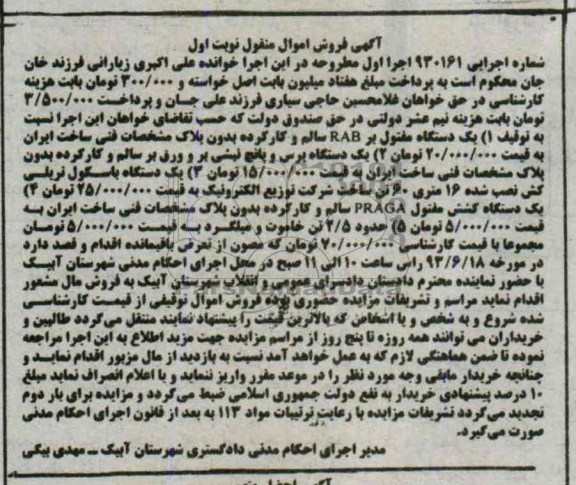 آگهی فروش اموال منقول نوبت اول
شماره اجرایی ۹۳۰۱۶۱ اجرا اول مطروحه در این اجرا خوانده علی اکبری زیارانی فرزند خان
جان محکوم است به پرداخت مبلغ هفتاد میلیون بابت اصل خواسته و ۳۰۰/۰۰۰ تومان بابت هزینه
کارشناسی در حق خواهان غلامحسین حاجی سیاری فرزند علی جسان و پرداخست ۳/۵۰۰/۰۰۰
تومان بابت هزینه نیم عشر دولتی در حق صندوق دولت که حسب تقاضای خواهان این اجرا نسبت
به توقیف ۱) یک دستگاه مفتول بر RAB سالم و کارکرده بدون پلاک مشخصات فنی ساخت ایران
به قیمت ۲۰/۰۰۰/۰۰۰ تومان ۲) یک دستگاه پرس و پانچ نبشی بر و ورق بر سالم و کارکرده بدون
پلاک مشخصات فنی ساخت ایران به قیمت ۱۵/۰۰۰/۰۰۰ تومان ۳) یک دستگاه باسکول تریلی
کش نصب شده ۱۶ متری ۶۰ تن ساخت شرکت توزیع الکترونیک به قیمت ۲۵/۰۰۰/۰۰۰ تومان ۴)
یک دستگاه کشش مفتول PRAGA سالم و کارکرده بدون پلاک مشخصات فنی ساخت ایران به
قیمت ۵/۰۰۰/۰۰۰ تومان ۵) حدود ۲/۵ تن خاموت و میلگرد به قیمت ۵/۰۰۰/۰۰۰ تومان
مجموعا با قیمت کارشناسی ۷۰/۰۰۰/۰۰۰ تومان که مصون از تعرض باقیمانده اقدام و قصد دارد
در مورخه ۹۳/۶/۱۸ راس ساعت ۱۰ الی ۱۱ صبح در محل اجرای احکام مدنی شهرستان آبیک
با حضور نماینده محترم دادستان دادسرای عمومی و انقلاب شهرستان آبیک به فروش مال مشعور
اقدام نماید مراسم و تشریفات مزایده حضوری بوده فروش اموال توقیفی از قیمت کارشناسی
شده شروع و به شخص و یا اشخاص که بالاترین قیمت را پیشنهاد نمایند منتقل می گردد طالبین و
خریداران می توانند همه روزه تا پنج روز از مراسم مزایده جهت مزید اطلاع به این اجرا مراجعه
نموده تا ضمن هماهنگی لازم که به عمل خواهد آمد نسبت به بازدید از مال مزبور اقدام نمایند و
چنانچه خریدار مابقی وجه مورد نظر را در موعد مقرر واریز ننماید و یا اعلام انصراف نماید مبلغ
۱۰ درصد پیشنهادی خریدار به نفع دولت جمهوری اسلامی ضبط می گردد و مزایده برای بار دوم
تجدید می گردد تشریفات مزایده با رعایت ترتیبات مواد ۱۱۳ به بعد از قانون اجرای احکام مدنی
صورت می گیرد.
مدیر اجرای احکام مدنی دادگستری شهرستان آبیک ــ مهدی بیکی